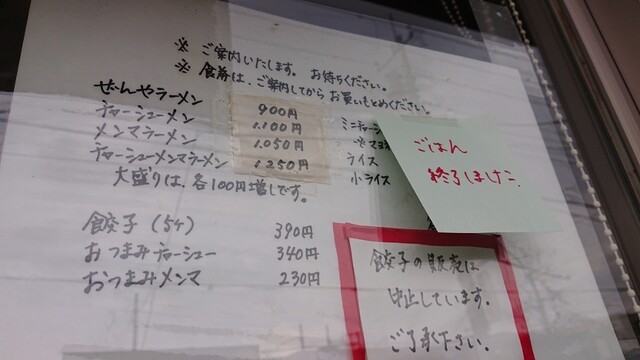 ※ ご案内いたします。お待ちください。
※ 食券は、ご案内してからお買いもとめください。
ぜんやラーメン 900円
チャーシューメン 1.100円
メンマラーメン 1.050円
チャーシューメンマラーメン 1.250円
大盛りは、各100円増しです。
ミニチャーシ
ライス
小ライス
ごはん
終了しました.
餃子(5ケ) 390円
おつまみチャーシュー 340円
おつまみメンマ 230円
餃子の販売は
中止しています.
ご了承ください.